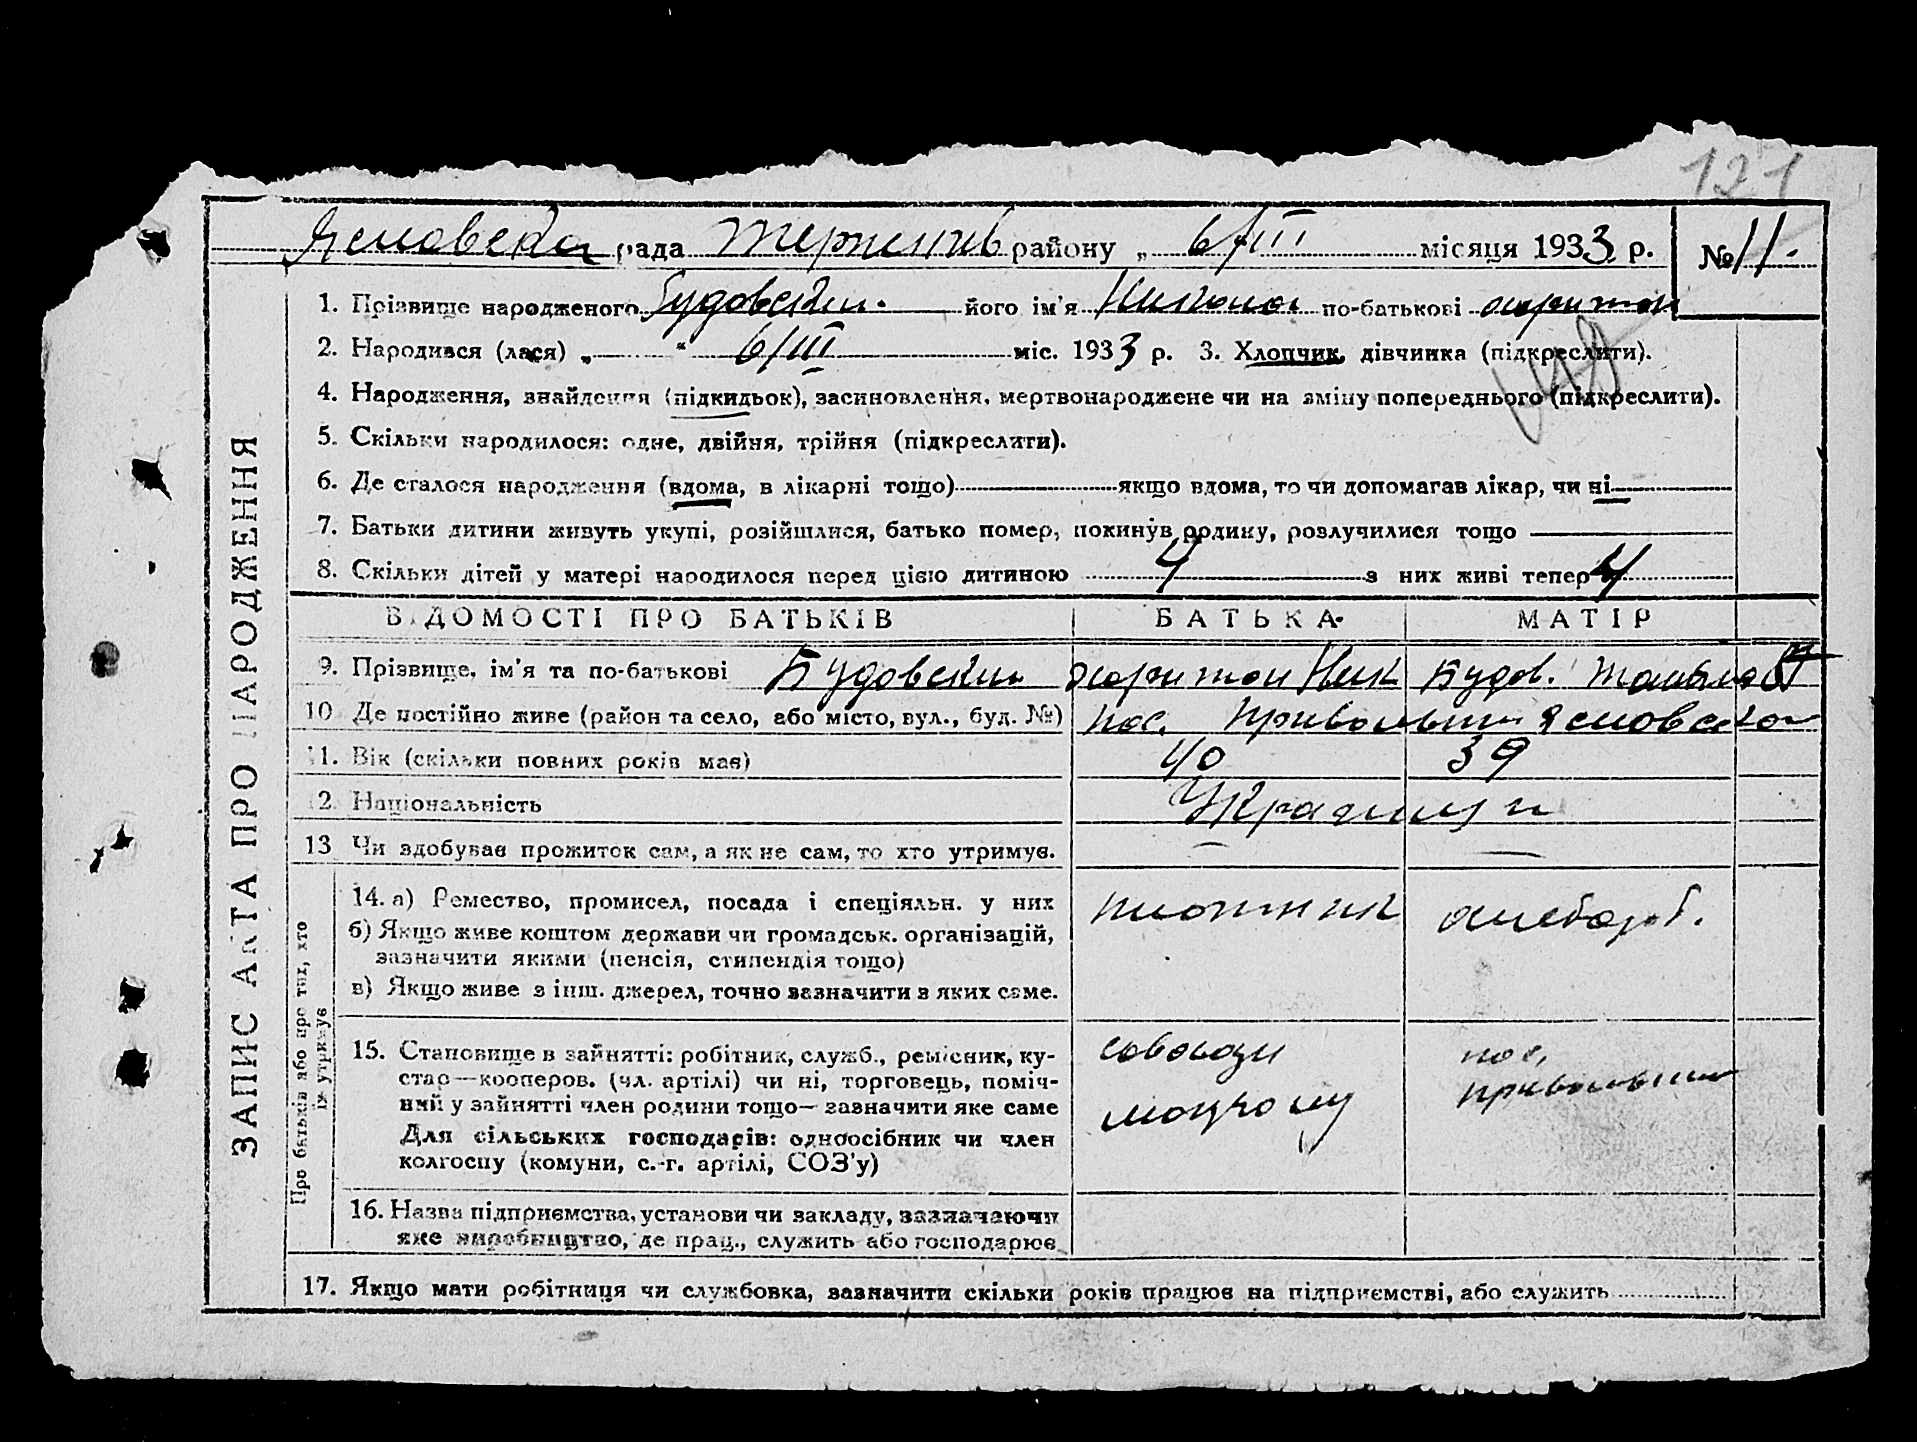 121
рада району „ 6/III місяця 1933 р. № 11.
1. Прізвище народженого Будовский його ім'я Никола по-батькові Харитон
2. Народився (лася) „ “ 6/III міс. 1933 р. 3. Хлопчик, дівчинка (підкреслити).
4. Народження, знайдення (підкидьок), засиновлення, мертвонароджене чи на зміну попереднього (підкреслити).
5. Скільки народилося: одне, двійня, трійня (підкреслити).
6. Де сталося народження (вдома, в лікарні тощо) якщо вдома, то чи допомагав лікар, чи ні
7. Батьки дитини живуть укупі, розійшлися, батько помер, покинув родину, розлучилися тощо
8. Скільки дітей у матері народилося перед цією дитиною 4 з них живі тепер 4
ВІДОМОСТІ ПРО БАТЬКІВ БАТЬКА МАТІР
9. Прізвище, ім'я та по-батькові Будовский Харитон Ник Будов.
10 Де постійно живе (район та село, або місто, вул., буд. №) пос.
11. Вік (скільки повних років має) 40 39
12. Національність
13 Чи здобуває прожиток сам, а як не сам, то хто утримує.
14. а) Ремество, промисел, посада і спеціяльн. у них плотник хлебороб.
б) Якщо живе коштом держави чи громадськ. організацій,
зазначити якими (пенсія, стипендія тощо)
в) Якщо живе з інш. джерел, точно зазначити з яких саме.
15. Становище в зайнятті: робітник, служб., ремісник, ку-
стар—кооперов. (чл. артілі) чи ні, торговець, поміч-
ний у зайнятті член родини тощо— зазначити яке саме
Для сільських господарів: одноосібник чи член
колгоспу (комуни, с.-г. артілі, СОЗ'у)
пос,
16. Назва підприємства, установи чи закладу, зазначаючи
яке виробництво, де прац., служить або господарює
17. Якщо мати робітниця чи службовка, зазначити скільки років працює на підприємстві, або служить
ЗАПИС АКТА ПРО НАРОДЖЕННЯ
Про батьків або про тих, хто
їх утримує